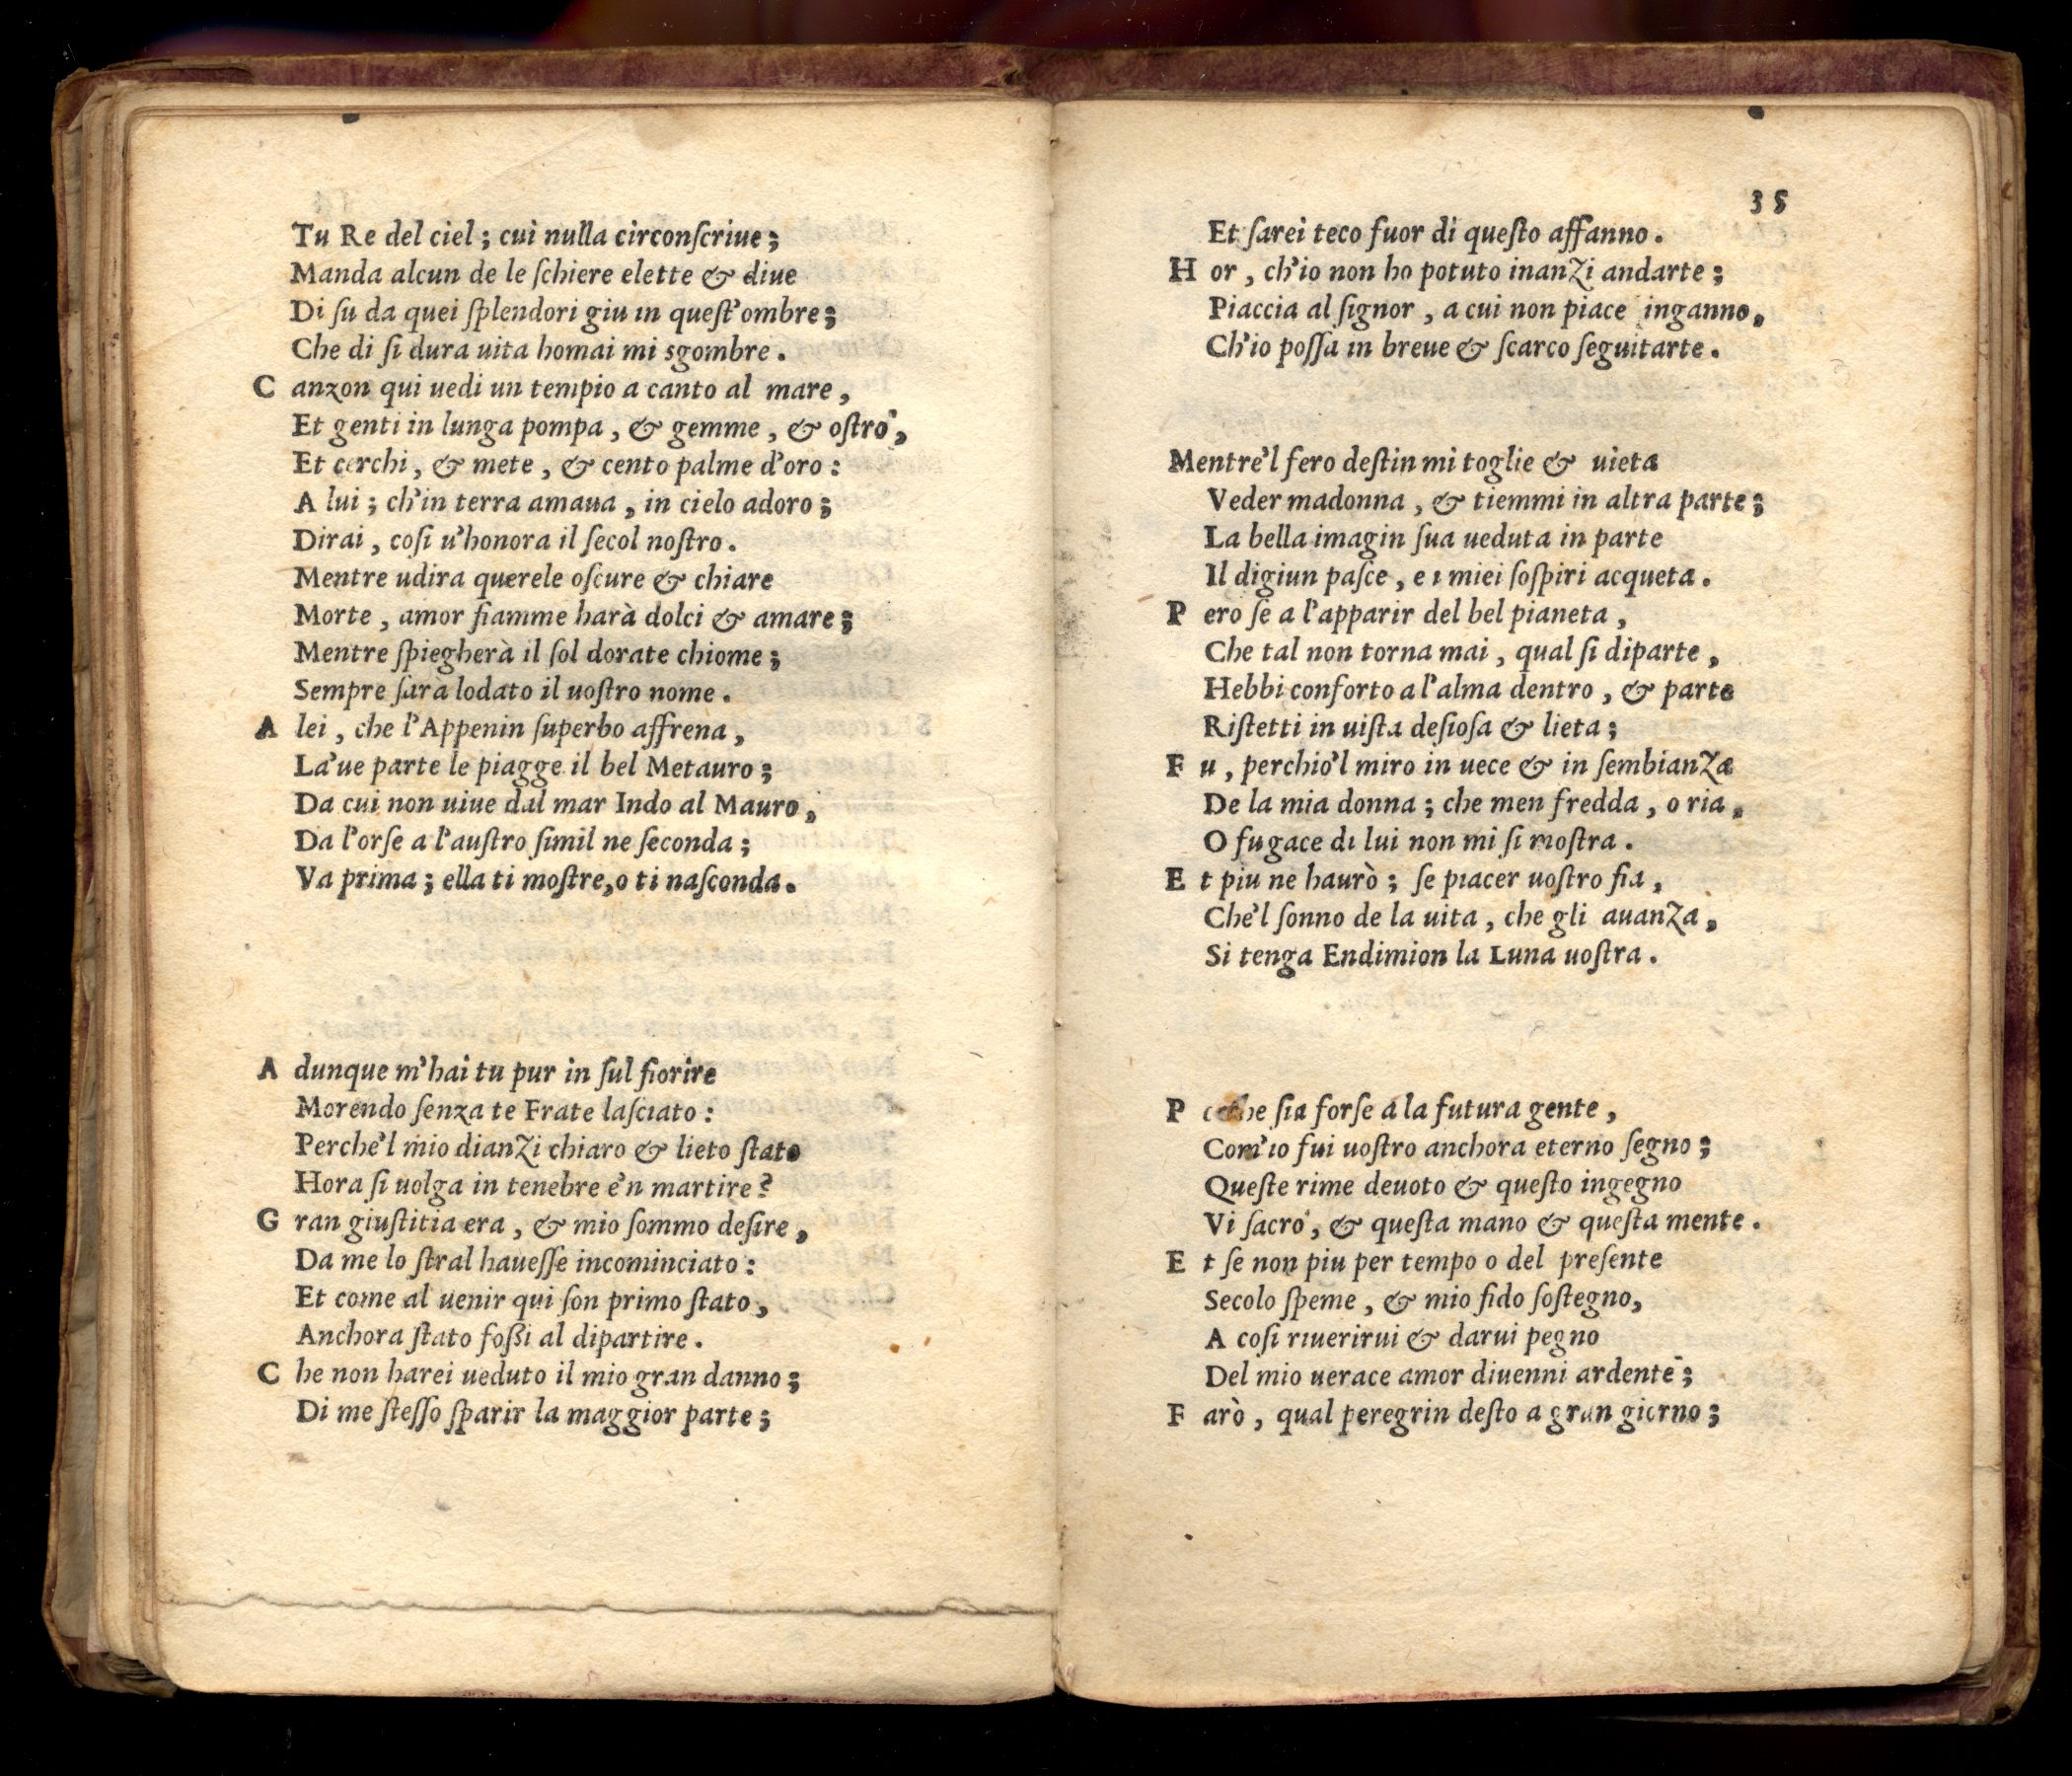 Tu Re del ciel; cui nulla circonſcriue;
Manda alcun de le ſchiere elette & diue
Di ſu da quei ſplendori giu in queſt'ombre;
Che di ſi dura uita homai mi sgombre.
C anzon qui uedi un tempio a canto al mare,
Et genti in lunga pompa, & gemme, & oſtro,
Et cerchi, & mete, & cento palme d'oro:
A lui; ch'in terra amaua, in cielo adoro;
Dirai, coſi u'honora il ſecol noſtro.
Mentre udira querele oſcure & chiare
Morte, amor fiamme harà dolci & amare;
Mentre ſpiegherà il ſol dorate chiome;
Sempre ſarà lodato il uoſtro nome.
A lei, che l'Appenin ſuperbo affrena,
La'ue parte le piagge il bel Metauro;
Da cui non uiue dal mar Indo al Mauro,
Da l'orſe a l'auſtro ſimil ne ſeconda;
Va prima; ella ti moſtre, o ti naſconda.
A dunque m'hai tu pur in ſul fiorire
Morendo ſenza te Frate laſciato:
Perche'l mio dianzi chiaro & lieto ſtato
Hora ſi uolga in tenebre e'n martire?
G ran giuſtitia era, & mio ſommo deſire,
Da me lo ſtral haueſſe incominciato:
Et come al uenir qui ſon primo ſtato,
Anchora ſtato foßi al dipartire.
C he non harei ueduto il mio gran danno;
Di me ſteſſo ſparir la maggior parte;
35
Et ſarei teco fuor di queſto affanno.
H or, ch'io non ho potuto inanzi andarte;
Piaccia al ſignor, a cui non piace inganno,
Ch'io poſſa in breue & ſcarco ſeguitarte.
Mentre'l fero deſtin mi toglie & uieta
Veder madonna, & tiemmi in altra parte;
La bella imagin ſua ueduta in parte
Il digiun paſce, e i miei ſoſpiri acqueta.
P ero ſe a l'apparir del bel pianeta,
Che tal non torna mai, qual ſi diparte,
Hebbi conforto a l'alma dentro, & parte
Riſtetti in uiſta deſioſa & lieta;
F u, perchio'l miro in uece & in ſembianza
De la mia donna; che men fredda, o ria,
O fugace di lui non mi ſi moſtra.
E t piu ne haurò; ſe piacer uoſtro fia,
Che'l ſonno de la uita, che gli auanza,
Si tenga Endimion la Luna uoſtra.
P oche ſia forſe a la futura gente,
Com'io fui uoſtro anchora eterno ſegno;
Queſte rime deuoto & queſto ingegno
Vi ſacro, & queſta mano & queſta mente.
E t ſe non piu per tempo o del preſente
Secolo ſpeme, & mio fido ſoſtegno,
A coſi riuerirui & darui pegno
Del mio uerace amor diuenni ardente;
F arò, qual peregrin deſto a gran giorno;